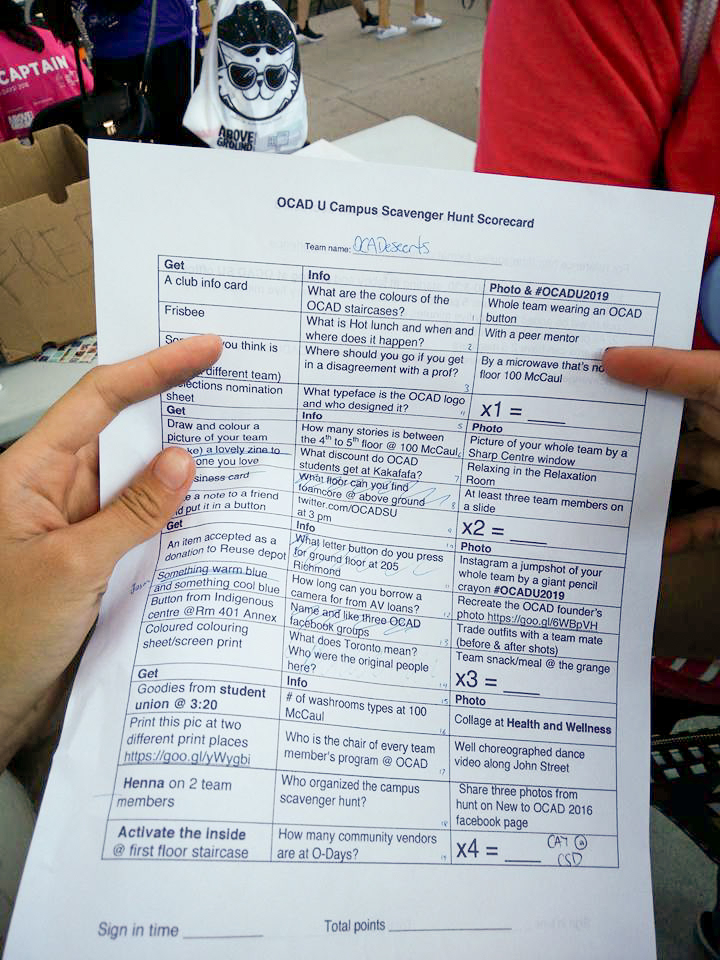 CAPTAIN
ABOVE
GROUND
FREE
OCAD U Campus Scavenger Hunt Scorecard
Team name: OCADeserts
Get
A club info card
Frisbee
you think is
different team)
elections nomination
sheet
Info
What are the colours of the
OCAD staircases?
1
What is Hot lunch and when and
where does it happen?
2
Where should you go if you get
in a disagreement with a prof?
3
What typeface is the OCAD logo
and who designed it?
4
Photo & #OCADU2019
Whole team wearing an OCAD
button
With a peer mentor
By a microwave that's
floor 100 McCaul
x1 = ____
Get
Draw and colour a
picture of your team
a lovely zine to
one you love
business card
a note to a friend
and put it in a button
Info
5
How many stories is between
the 4th to 5th floor @ 100 McCaul
6
What discount do OCAD
students get at Kakafafa?
7
What floor can you find
foamcore @ above ground
8
twitter.com/OCADSU
at 3 pm
9
Photo
Picture of your whole team by a
Sharp Centre window
Relaxing in the Relaxation
Room
At least three team members on
a slide
x2 = ____
Get
An item accepted as a
donation to Reuse depot
Something warm blue
and something cool blue
Button from Indigenous
centre @Rm 401 Annex
Coloured colouring
sheet/screen print
Info
10
What letter button do you press
for ground floor at 205
Richmond
11
How long can you borrow a
camera for from AV loans?
12
Name and like three OCAD
facebook groups
13
What does Toronto mean?
Who were the original people
here?
14
Photo
Instagram a jumpshot of your
whole team by a giant pencil
crayon #OCADU2019
Recreate the OCAD founder's
photo https://goo.gl/6WBpVH
Trade outfits with a team mate
(before & after shots)
Team snack/meal @ the grange
x3 = ____
Get
Goodies from student
union @ 3:20
Print this pic at two
different print places
https://goo.gl/yWygbi
Henna on 2 team
members
Activate the inside
@ first floor staircase
Info
15
# of washrooms types at 100
McCaul
16
Who is the chair of every team
member's program @ OCAD
17
Who organized the campus
scavenger hunt?
18
How many community vendors
are at O-Days?
19
Photo
Collage at Health and Wellness
Well choreographed dance
video along John Street
Share three photos from
hunt on New to OCAD 2016
facebook page
x4 = ____
CAT @
CSD
Sign in time ________
Total points ____________